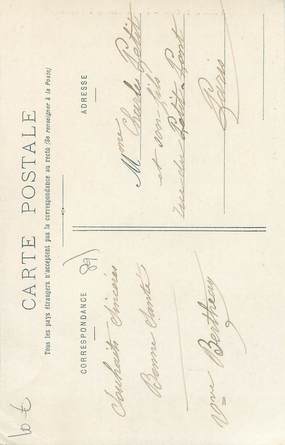 CARTE POSTALE
Tous les pays étrangers n'acceptent pas la correspondance au recto (Se renseigner à la Poste)
CORRESPONDANCE
ADRESSE
89
Souhaits sincères
Bonne Santé
Vve Berthery
Mme Charles Petit
et son fils
rue du Petit-Pont
Paris
10 €